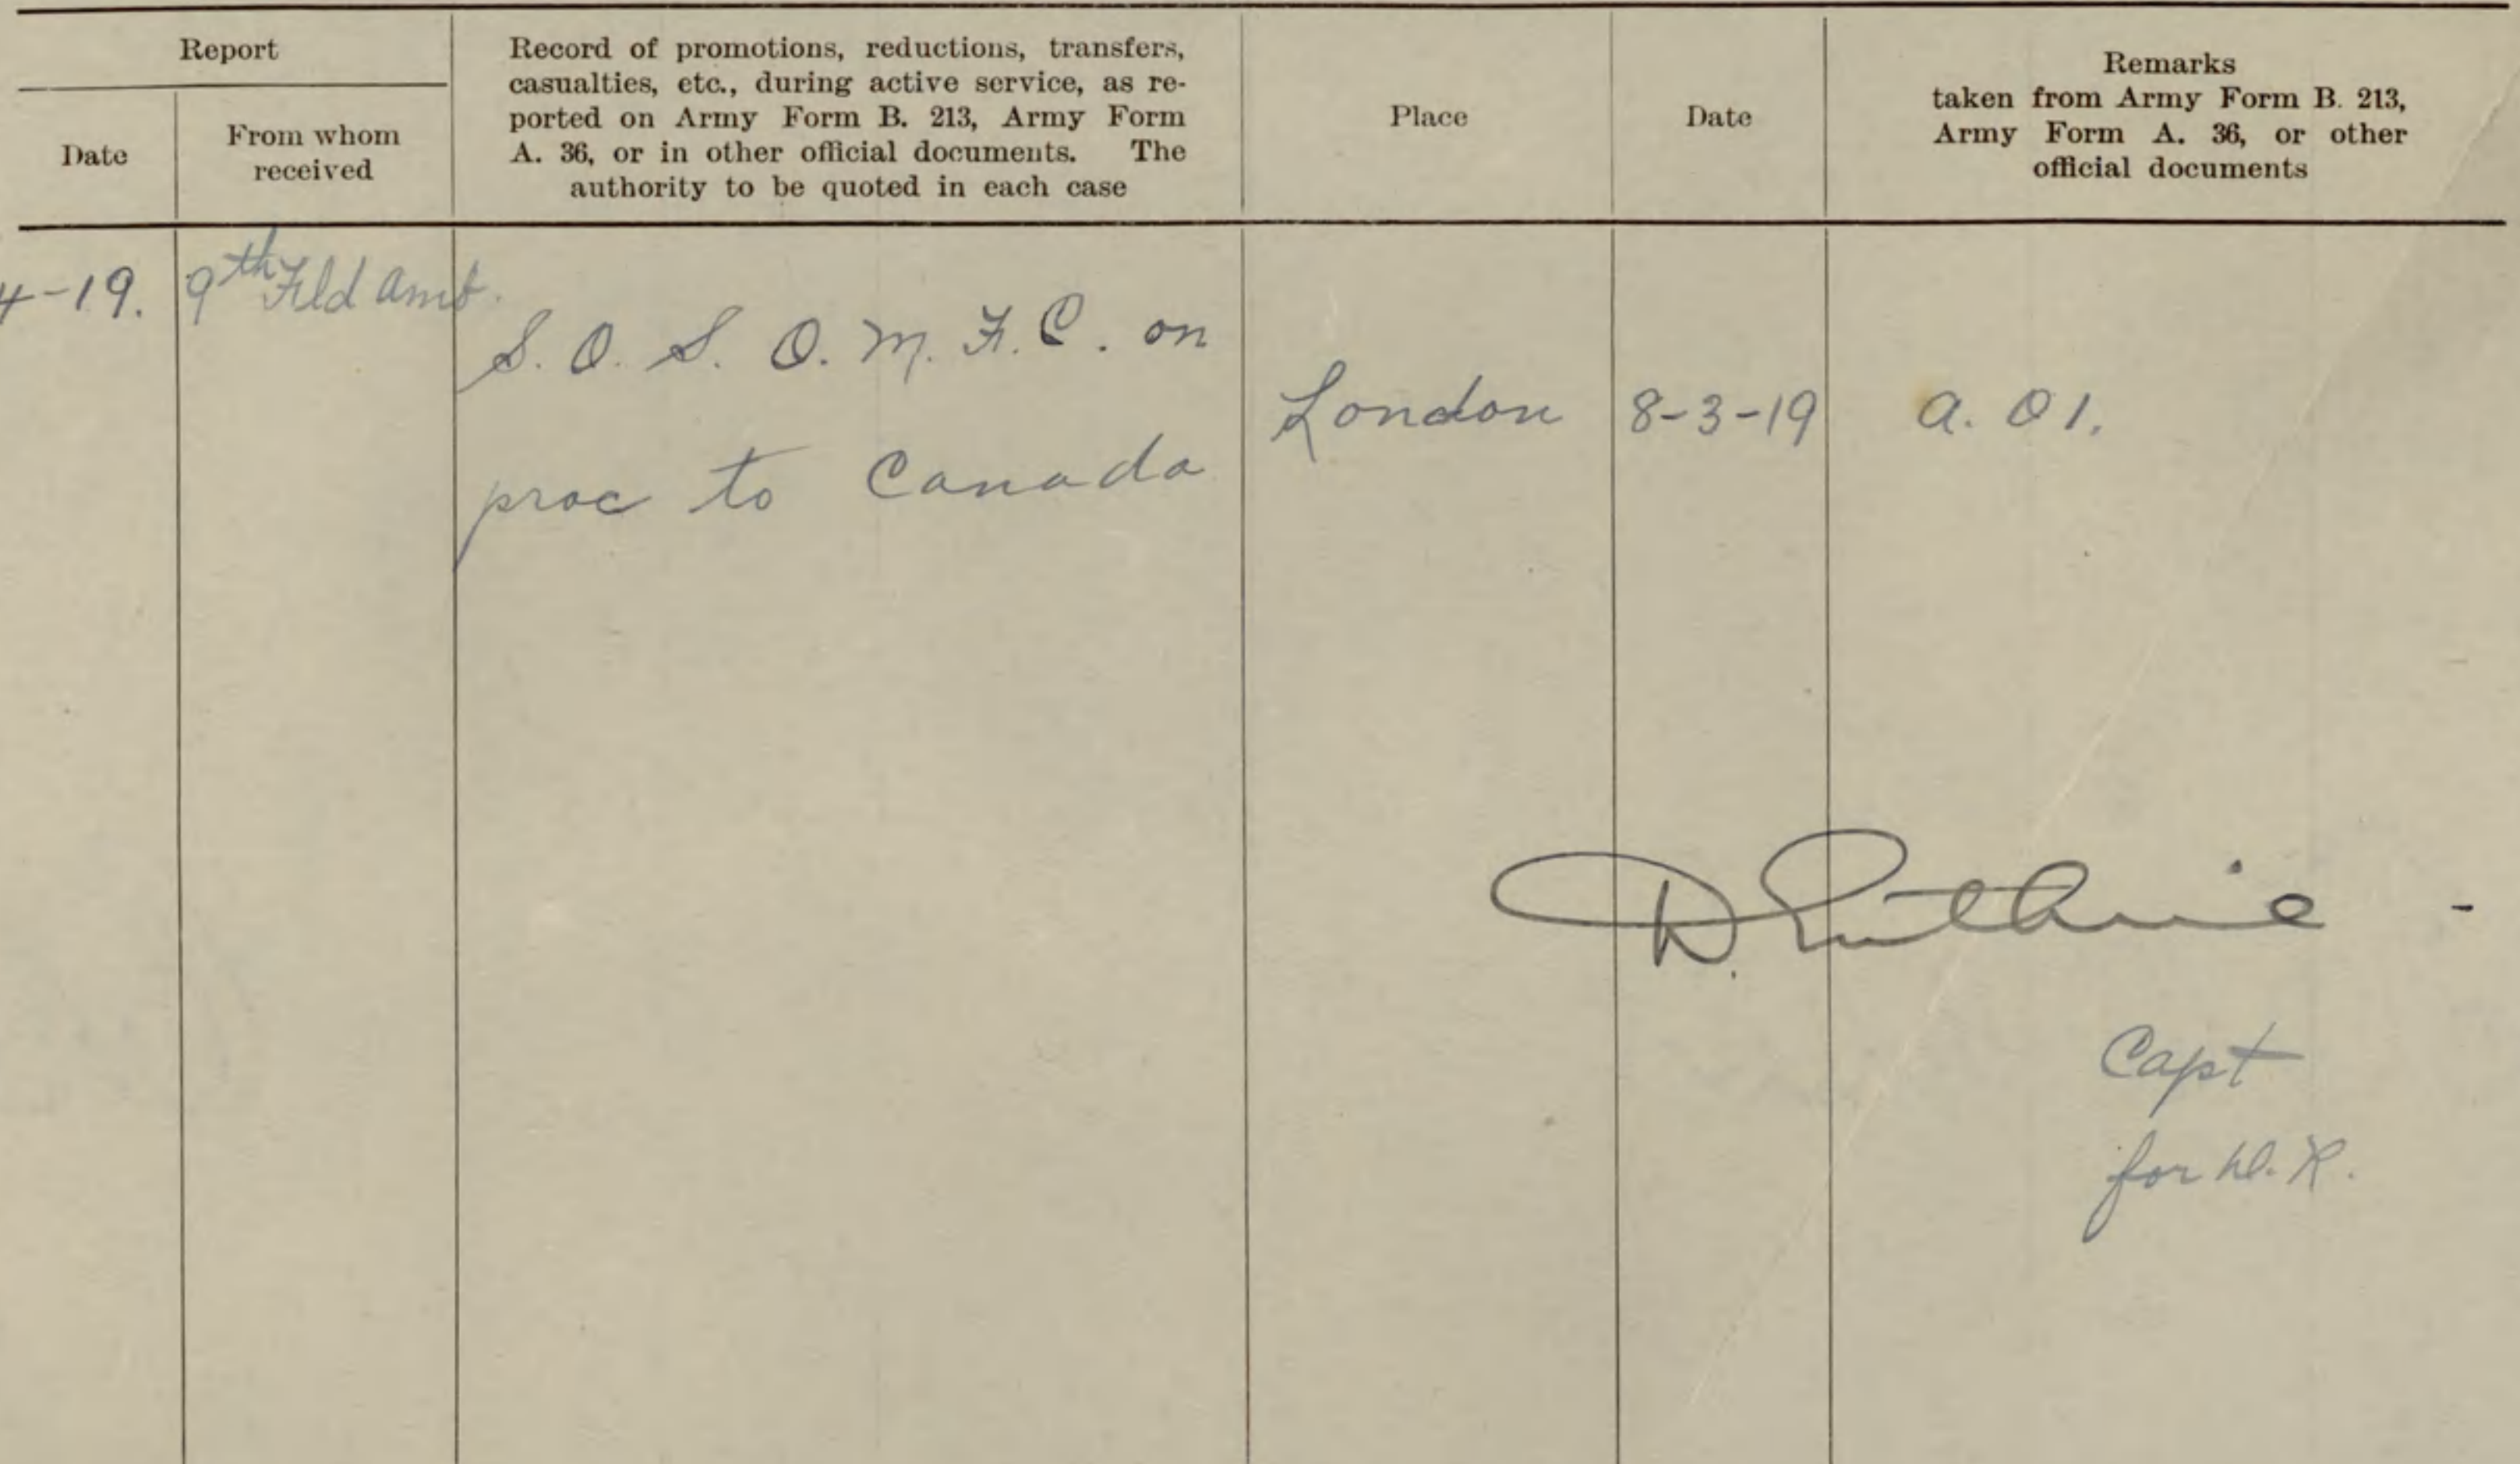 Report
Date
From whom
received
Record of promotions, reductions, transfers,
casualties, etc., during active service, as re-
ported on Army Form B. 213, Army Form
A. 36, or in other official documents. The
authority to be quoted in each case
Place
Date
Remarks
taken from Army Form B. 213,
Army Form A. 36, or other
official documents
4-19.
9th Fld Amb.
S. O. S. O. M. F. C. on
proc to Canada
London
8-3-19
A. O 1.
D. Guthrie
Capt
for D. R.